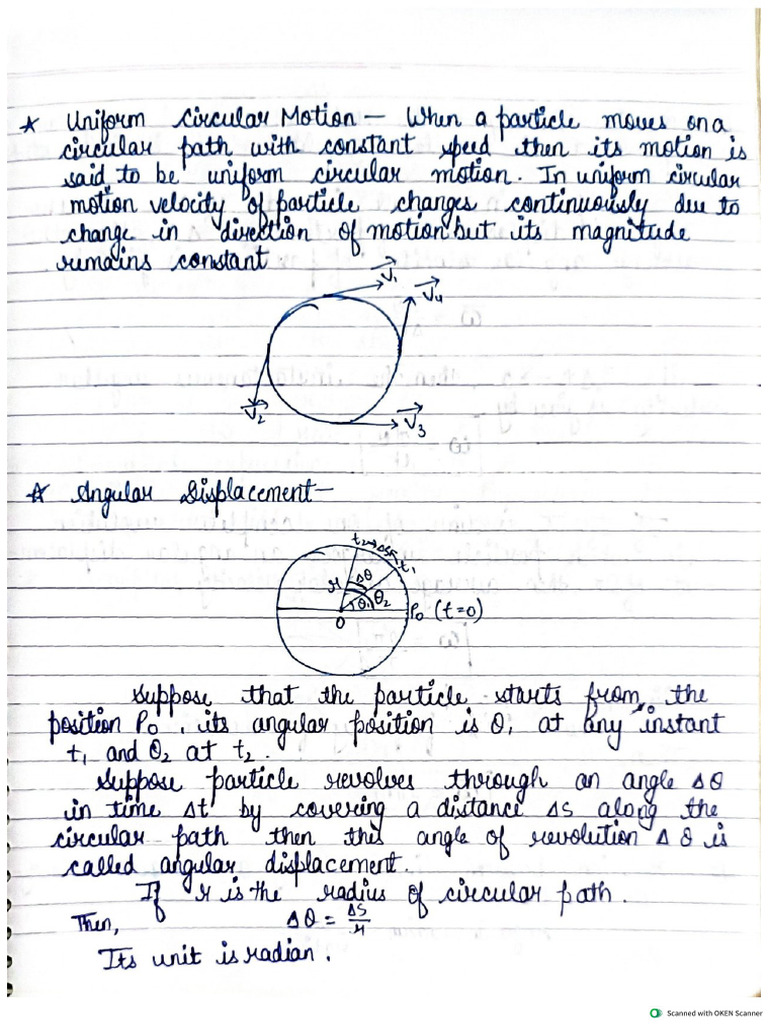 ☆ Uniform circular Motion – When a particle moves on a
circular path with constant speed then its motion is
said to be uniform circular motion. In uniform circular
motion velocity of particle changes continuously due to
change in direction of motion but its magnitude
remains constant
V₁
V₄
V₂
V₃
☆ Angular Displacement–
t₂ ΔS t₁
r Δθ
θ₁ θ₂
O
P₀ (t=0)
Suppose that the particle starts from the
position P₀, its angular position is θ₁ at any instant
t₁ and θ₂ at t₂.
Suppose particle revolves through an angle Δθ
in time Δt by covering a distance Δs along the
circular path then this angle of revolution Δθ is
called angular displacement.
If r is the radius of circular path.
Then, Δθ = Δs/r
Its unit is radian.
Scanned with OKEN Scanner